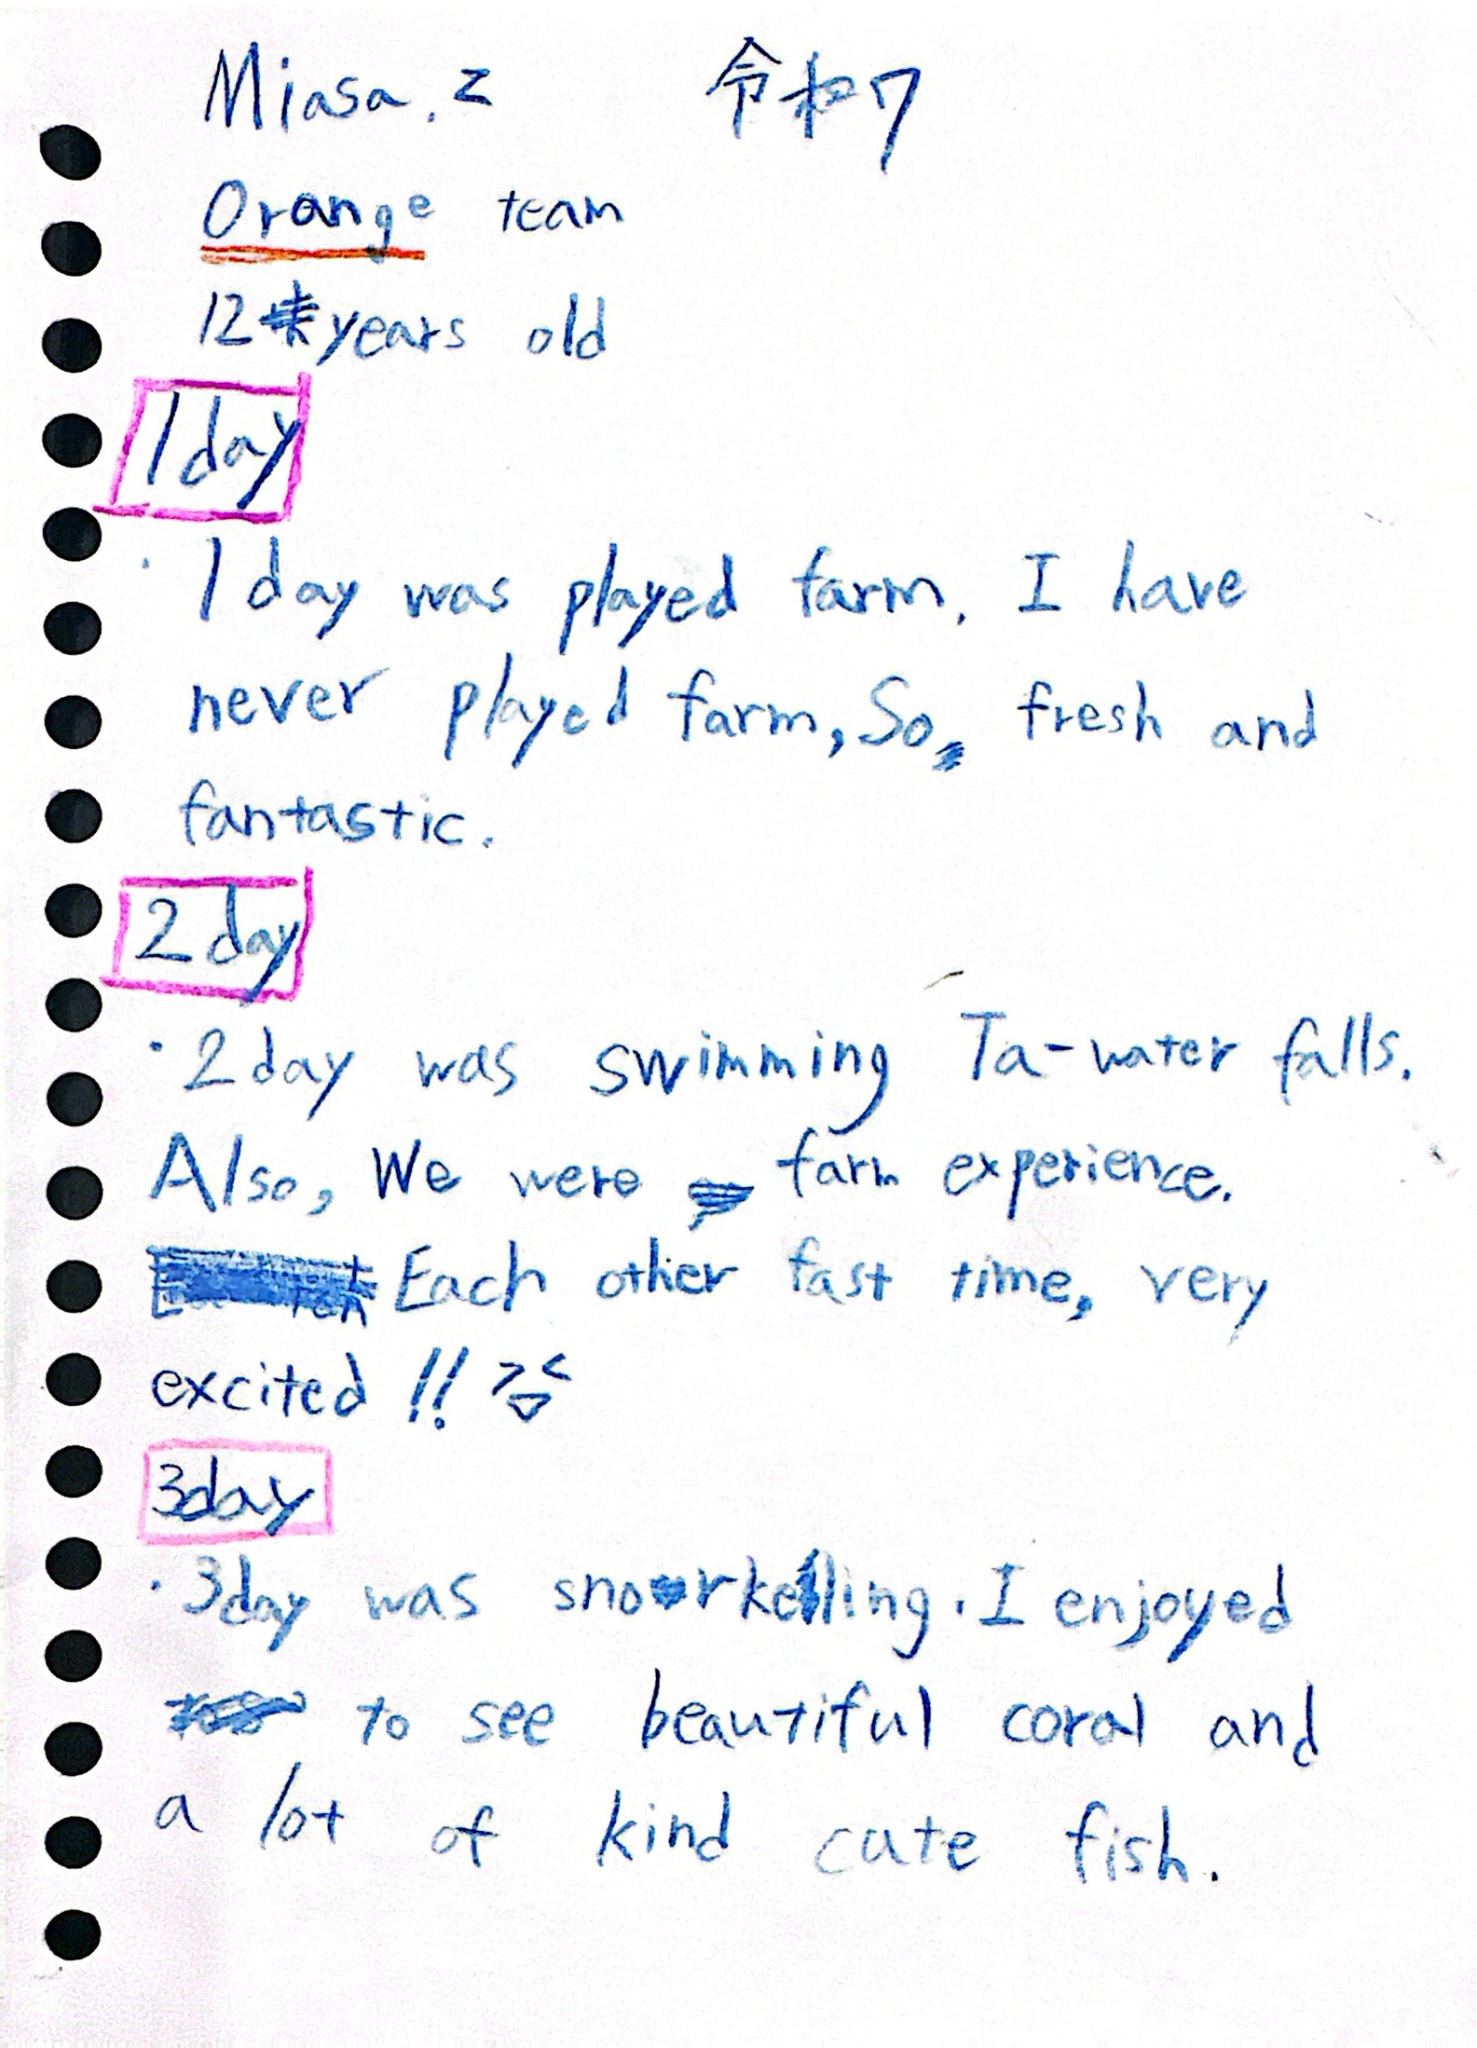 Miasa. z 令和7
Orange team
12 years old
1 day
・1 day was played farm. I have
never played farm, So fresh and
fantastic.
2 day
・2 day was swimming Ta-water falls.
Also, We were farm experience.
Each other fast time, very
excited !!
3day
・3day was snorkelling. I enjoyed
to see beautiful coral and
a lot of kind cute fish.